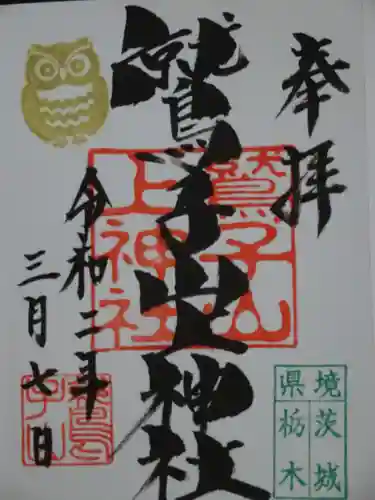 奉拝
鷲子山上神社
令和二年
三月七日
鷲子山
上神社
県境
茨城
栃木